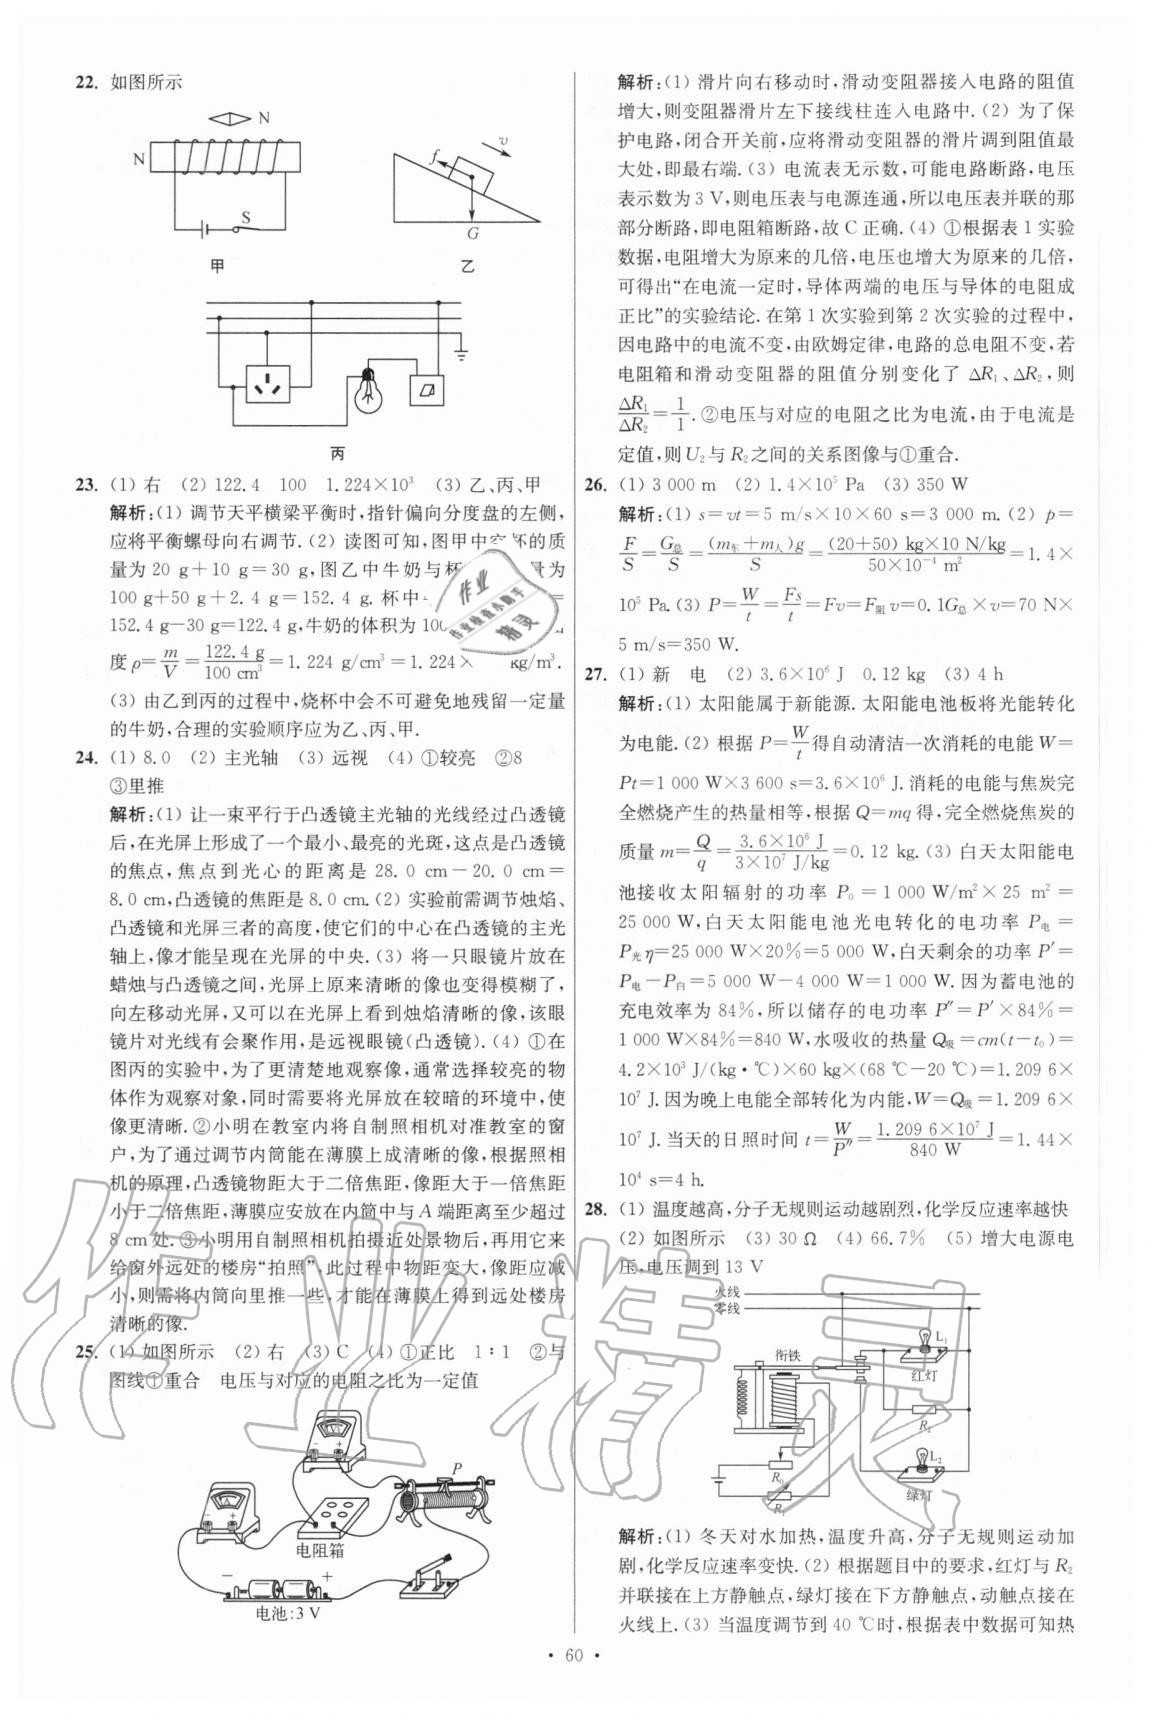 22. 如图所示
N
N
S
甲
f
v
G
乙
丙
23. (1) 右 (2) 122.4 100 1.224×10³ (3) 乙、丙、甲
解析:(1) 调节天平横梁平衡时,指针偏向分度盘的左侧,
应将平衡螺母向右调节.(2) 读图可知,图甲中空杯的质
量为 20 g+10 g=30 g,图乙中牛奶与杯 量为
100 g+50 g+2.4 g=152.4 g.杯中 =
152.4 g-30 g=122.4 g,牛奶的体积为 100
度 ρ=m/V=122.4 g/100 cm³=1.224 g/cm³=1.224× kg/m³.
(3) 由乙到丙的过程中,烧杯中会不可避免地残留一定量
的牛奶,合理的实验顺序应为乙、丙、甲.
24. (1) 8.0 (2) 主光轴 (3) 远视 (4) ①较亮 ②8
③里推
解析:(1) 让一束平行于凸透镜主光轴的光线经过凸透镜
后,在光屏上形成了一个最小、最亮的光斑,这点是凸透镜
的焦点,焦点到光心的距离是 28.0 cm-20.0 cm=
8.0 cm,凸透镜的焦距是 8.0 cm.(2) 实验前需调节烛焰、
凸透镜和光屏三者的高度,使它们的中心在凸透镜的主光
轴上,像才能呈现在光屏的中央.(3) 将一只眼镜片放在
蜡烛与凸透镜之间,光屏上原来清晰的像也变得模糊了,
向左移动光屏,又可以在光屏上看到烛焰清晰的像,该眼
镜片对光线有会聚作用,是远视眼镜(凸透镜).(4) ①在
图丙的实验中,为了更清楚地观察像,通常选择较亮的物
体作为观察对象,同时需要将光屏放在较暗的环境中,使
像更清晰.②小明在教室内将自制照相机对准教室的窗
户,为了通过调节内筒能在薄膜上成清晰的像,根据照相
机的原理,凸透镜物距大于二倍焦距,像距大于一倍焦距
小于二倍焦距,薄膜应安放在内筒中与 A 端距离至少超过
8 cm处.③小明用自制照相机拍摄近处景物后,再用它来
给窗外远处的楼房“拍照”,此过程中物距变大,像距应减
小,则需将内筒向里推一些,才能在薄膜上得到远处楼房
清晰的像.
25. (1) 如图所示 (2) 右 (3) C (4) ①正比 1∶1 ②与
图线①重合 电压与对应的电阻之比为一定值
V
A
P
电阻箱
电池:3 V
解析:(1) 滑片向右移动时,滑动变阻器接入电路的阻值
增大,则变阻器滑片左下接线柱连入电路中.(2) 为了保
护电路,闭合开关前,应将滑动变阻器的滑片调到阻值最
大处,即最右端.(3) 电流表无示数,可能电路断路,电压
表示数为 3 V,则电压表与电源连通,所以电压表并联的那
部分断路,即电阻箱断路,故 C 正确.(4) ①根据表 1 实验
数据,电阻增大为原来的几倍,电压也增大为原来的几倍,
可得出“在电流一定时,导体两端的电压与导体的电阻成
正比”的实验结论.在第 1 次实验到第 2 次实验的过程中,
因电路中的电流不变,由欧姆定律,电路的总电阻不变,若
电阻箱和滑动变阻器的阻值分别变化了 △R₁、△R₂,则
△R₁/△R₂=1/1.②电压与对应的电阻之比为电流,由于电流是
定值,则 U₂ 与 R₂ 之间的关系图像与①重合.
26. (1) 3 000 m (2) 1.4×10⁵ Pa (3) 350 W
解析:(1) s=vt=5 m/s×10×60 s=3 000 m.(2) p=
F/S=G总/S=(m车+m人)g/S=(20+50) kg×10 N/kg/50×10⁻⁴ m²=1.4×
10⁵ Pa.(3) P=W/t=Fs/t=Fv=F阻v=0.1G总×v=70 N×
5 m/s=350 W.
27. (1) 新 电 (2) 3.6×10⁶ J 0.12 kg (3) 4 h
解析:(1) 太阳能属于新能源.太阳能电池板将光能转化
为电能.(2) 根据 P=W/t得自动清洁一次消耗的电能 W=
Pt=1 000 W×3 600 s=3.6×10⁶ J.消耗的电能与焦炭完
全燃烧产生的热量相等,根据 Q=mq 得,完全燃烧焦炭的
质量 m=Q/q=3.6×10⁶ J/3×10⁷ J/kg=0.12 kg.(3) 白天太阳能电
池接收太阳辐射的功率 P₀=1 000 W/m²×25 m²=
25 000 W,白天太阳能电池光电转化的电功率 P电=
P光η=25 000 W×20%=5 000 W,白天剩余的功率 P′=
P电-P白=5 000 W-4 000 W=1 000 W.因为蓄电池的
充电效率为 84%,所以储存的电功率 P″=P′×84%=
1 000 W×84%=840 W,水吸收的热量 Q吸=cm(t-t₀)=
4.2×10³ J/(kg·℃)×60 kg×(68 ℃-20 ℃)=1.209 6×
10⁷ J.因为晚上电能全部转化为内能,W=Q吸=1.209 6×
10⁷ J.当天的日照时间 t=W/P″=1.209 6×10⁷ J/840 W=1.44×
10⁴ s=4 h.
28. (1) 温度越高,分子无规则运动越剧烈,化学反应速率越快
(2) 如图所示 (3) 30 Ω (4) 66.7% (5) 增大电源电
压,电压调到 13 V
火线
零线
衔铁
L₁
红灯
R₂
L₂
绿灯
R₀
R₁
解析:(1) 冬天对水加热,温度升高,分子无规则运动加
剧,化学反应速率变快.(2) 根据题目中的要求,红灯与 R₂
并联接在上方静触点,绿灯接在下方静触点,动触点接在
火线上.(3) 当温度调节到 40 ℃时,根据表中数据可知热
· 60 ·
作业精灵
作业
作业检查小助手
精灵